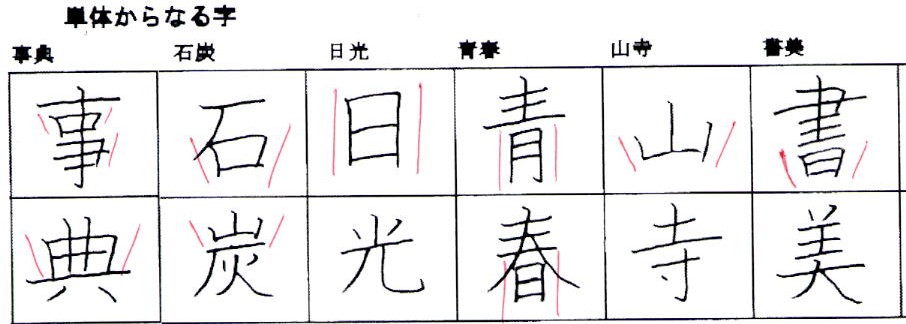 単体からなる字
事典 石炭 日光 青春 山寺 書美
事 石 日 青 山 書
典 炭 光 春 寺 美